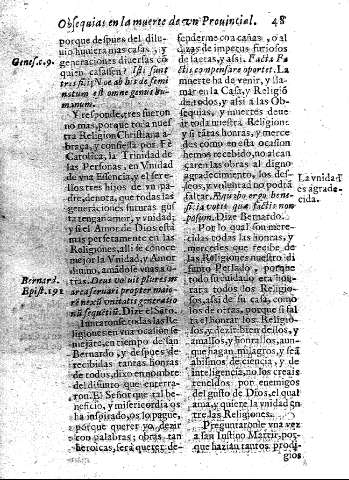 Obsequias en la muerte de vn Provincial. 48
Genes. c. 9.
porque despues del dilu-
vio, huviera mas casas, y
generaciones diversas có
quien casassen? Isti sunt
tres filij Noe, ab his de semi
natum est omne genus hu-
manum.
Y responde, tres fueron
no mas, porque toda nuest
tra Religion Christiana a-
braça, y confiessa por Fè
Catolica, la Trinidad de
las Personas, en Vnidad
de vna Essencia, y el ser e-
llos tres hijos de vn pa-
dre, denota, que todas las
generaciones futuras gus
ta tengan amor, y vnidad;
y si el Amor de Dios està
mas perfetamente en las
Religiones, alli se conoce
mejor la Vnidad, y Amor
divino, amádose vnas a o-
tras. Deus
Bernard.
Epist. 191
Dize el Sáto.
Iuntaronse todas las Re
ligiones en vna ocasió se
mejáte, en tiempo de san
Bernardo, y despues de
recibidas tantas honras
de todos, dixo en nombre
del difunto que enterra-
ron. El Señor que tal be-
neficio, y misericordia os
ha inspirado, os lo pague,
porque querer yo dezir
con palabras; obras tan
heroicas, será querer de-
fenderme con cañas, o al
cuzas de impetus furiosos
de lactas, y assi. Facta Fa
ctis compensare oportet. La
muerte ha de venir, y lla-
mar en la Casa, y Religió
de todos, y assi a las Ob-
sequias, y muertes deve
ir toda nuestra Religion
y si tátas honras, y merce
des como en esta ocasion
hemos recebido, no alcan
çaren las obras al digno
agradecimiento, los des-
seos, y voluntad no podrá
faltar.
Dize Bernardo.
La vnidad
es agrade-
cida.
Por lo qual som me-
recidas todas las honras, y
mercedes que recibe de
las Religiones nuestro di
funto Perlado, porque
todo su cuidado era hon
rara todos los Religio-
sos, assi de su casa, como
los de otras, porque si fal
ta el honrar los Religio-
sos, y dezir bien dellos, y
amallos, y honrallos, aun-
que hagan milagros, y seá
abismos de ciencia, y de
inteligencia, no los creais
teneldos por enemigos
del gusto de Dios, el qual
ama, y quiere la vnidad en
tre las Religiones.
Preguntaronle vna vez
a san Iustino Martir, por-
que hazian tantos prodi-
gios